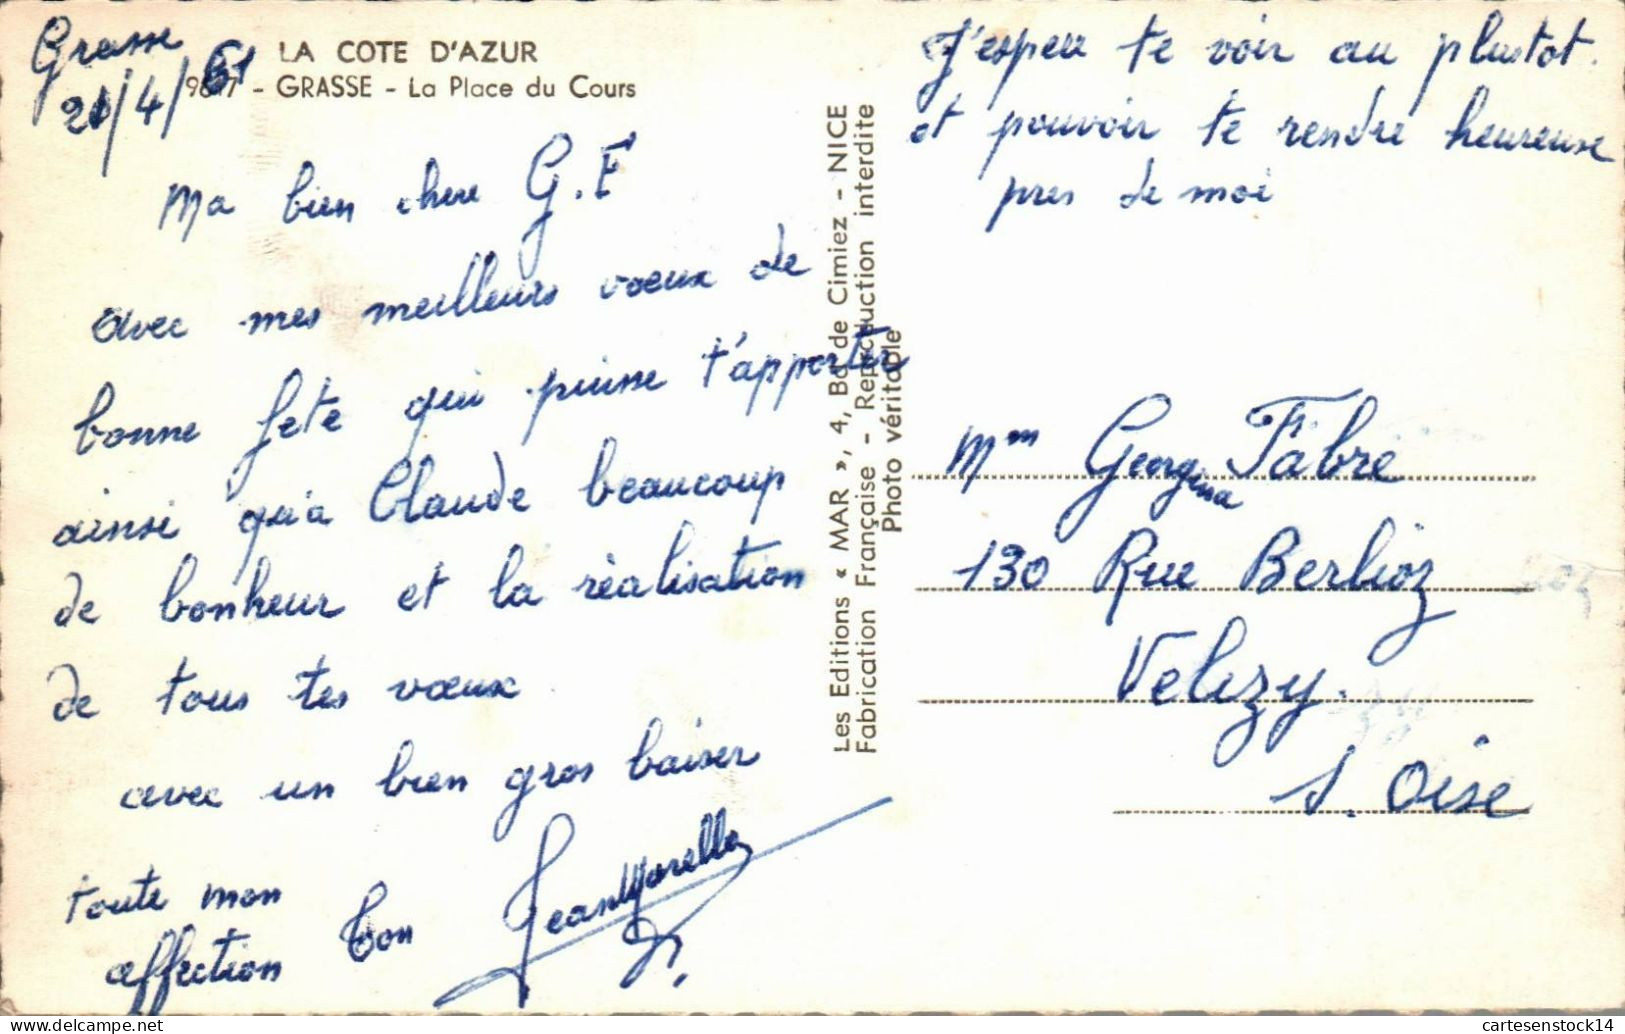 Grasse
21/4/61
LA COTE D'AZUR
9617 - GRASSE - La Place du Cours
Ma bien chere G.F
avec mes meilleurs voeux de
bonne fete qui puisse t'apporter
ainsi qu'a Claude beaucoup
de bonheur et la réalisation
de tous tes vœux
avec un bien gros baiser
toute mon
affection
Ton
J'espere te voir au plustot.
et pouvoir te rendre heureuse
pres de moi
Les Editions « MAR », 4, Bd de Cimiez - NICE
Fabrication Française - Reproduction interdite
Photo véritable
Mm Georgina Fabre
130 Rue Berlioz
Velizy.
S. Oise
cartesenstock14